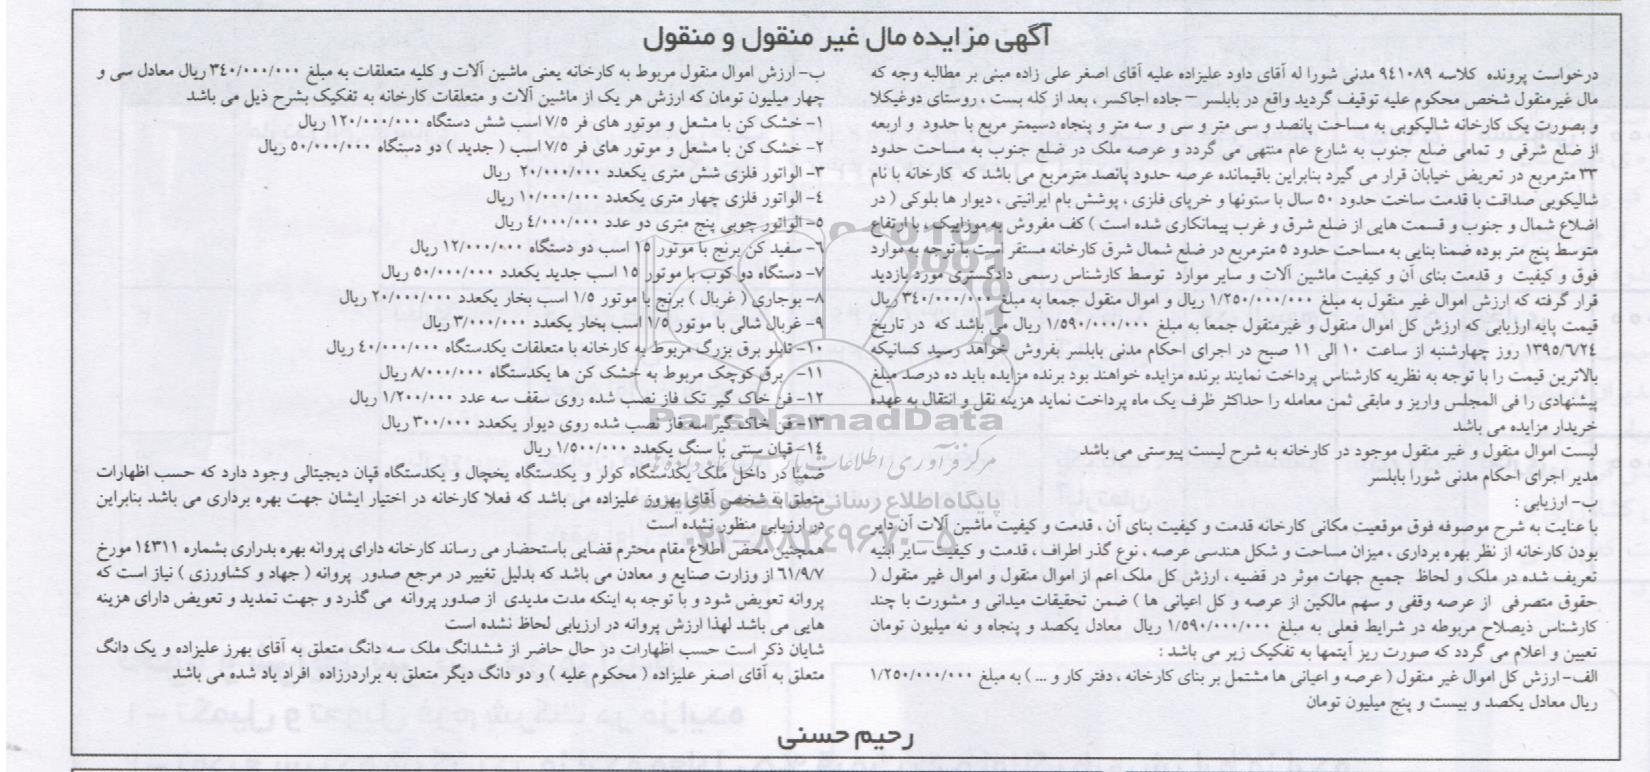 آگهی مزایده مال غیر منقول و منقول
درخواست پرونده کلاسه ۹۴۱۰۸۹ مدنی شورا له آقای داود علیزاده علیه آقای اصغر علی زاده مبنی بر مطالبه وجه که
مال غیرمنقول شخص محکوم علیه توقیف گردید واقع در بابلسر – جاده اجاکسر ، بعد از کله بست ، روستای دوغیکلا
و بصورت یک کارخانه شالیکوبی به مساحت پانصد و سی متر و سی و سه متر و پنجاه دسیمتر مربع با حدود و اربعه
از ضلع شرقی و تمامی ضلع جنوب به شارع عام منتهی می گردد و عرصه ملک در ضلع جنوب به مساحت حدود
۳۳ مترمربع در تعریض خیابان قرار می گیرد بنابراین باقیمانده عرصه حدود پانصد مترمربع می باشد که کارخانه با نام
شالیکوبی صداقت با قدمت ساخت حدود ۵۰ سال با ستونها و خرپای فلزی ، پوشش بام ایرانیتی ، دیوار ها بلوکی ( در
اضلاع شمال و جنوب و قسمت هایی از ضلع شرق و غرب پیمانکاری شده است ) کف مفروش به موزاییک ، با ارتفاع
متوسط پنج متر بوده ضمنا بنایی به مساحت حدود ۵ مترمربع در ضلع شمال شرق کارخانه مستقر است با توجه به موارد
فوق و کیفیت و قدمت بنای آن و کیفیت ماشین آلات و سایر موارد توسط کارشناس رسمی دادگستری مورد بازدید
قرار گرفته که ارزش اموال غیر منقول به مبلغ ۱/۲۵۰/۰۰۰/۰۰۰ ریال و اموال منقول جمعا به مبلغ ۳۴۰/۰۰۰/۰۰۰ ریال
قیمت پایه ارزیابی که ارزش کل اموال منقول و غیرمنقول جمعا به مبلغ ۱/۵۹۰/۰۰۰/۰۰۰ ریال می باشد که در تاریخ
۱۳۹۵/۶/۲۴ روز چهارشنبه از ساعت ۱۰ الی ۱۱ صبح در اجرای احکام مدنی بابلسر بفروش خواهد رسید کسانیکه
بالاترین قیمت را با توجه به نظریه کارشناس پرداخت نمایند برنده مزایده خواهند بود برنده مزایده باید ده درصد مبلغ
پیشنهادی را فی المجلس واریز و مابقی ثمن معامله را حداکثر ظرف یک ماه پرداخت نماید هزینه نقل و انتقال به عهده
خریدار مزایده می باشد
لیست اموال منقول و غیر منقول موجود در کارخانه به شرح لیست پیوستی می باشد
مدیر اجرای احکام مدنی شورا بابلسر
ب- ارزیابی :
با عنایت به شرح موصوفه فوق موقعیت مکانی کارخانه قدمت و کیفیت بنای آن ، قدمت و کیفیت ماشین آلات آن دایر
بودن کارخانه از نظر بهره برداری ، میزان مساحت و شکل هندسی عرصه ، نوع گذر اطراف ، قدمت و کیفیت سایر ابنیه
تعریف شده در ملک و لحاظ جمیع جهات موثر در قضیه ، ارزش کل ملک اعم از اموال منقول و اموال غیر منقول (
حقوق متصرفی از عرصه وقفی و سهم مالکین از عرصه و کل اعیانی ها ) ضمن تحقیقات میدانی و مشورت با چند
کارشناس ذیصلاح مربوطه در شرایط فعلی به مبلغ ۱/۵۹۰/۰۰۰/۰۰۰ ریال معادل یکصد و پنجاه و نه میلیون تومان
تعیین و اعلام می گردد که صورت ریز آیتمها به تفکیک زیر می باشد :
الف- ارزش کل اموال غیر منقول ( عرصه و اعیانی ها مشتمل بر بنای کارخانه ، دفتر کار و ... ) به مبلغ ۱/۲۵۰/۰۰۰/۰۰۰
ریال معادل یکصد و بیست و پنج میلیون تومان
ب- ارزش اموال منقول مربوط به کارخانه یعنی ماشین آلات و کلیه متعلقات به مبلغ ۳۴۰/۰۰۰/۰۰۰ ریال معادل سی و
چهار میلیون تومان که ارزش هر یک از ماشین آلات و متعلقات کارخانه به تفکیک بشرح ذیل می باشد
۱- خشک کن با مشعل و موتور های فر ۷/۵ اسب شش دستگاه ۱۲۰/۰۰۰/۰۰۰ ریال
۲- خشک کن با مشعل و موتور های فر ۷/۵ اسب ( جدید ) دو دستگاه ۵۰/۰۰۰/۰۰۰ ریال
۳- الواتور فلزی شش متری یکعدد ۲۰/۰۰۰/۰۰۰ ریال
۴- الواتور فلزی چهار متری یکعدد ۱۰/۰۰۰/۰۰۰ ریال
۵- الواتور چوبی پنج متری دو عدد ۴/۰۰۰/۰۰۰ ریال
۶- سفید کن برنج با موتور ۱۵ اسب دو دستگاه ۱۲/۰۰۰/۰۰۰ ریال
۷- دستگاه دو کوب با موتور ۱۵ اسب جدید یکعدد ۵۰/۰۰۰/۰۰۰ ریال
۸- بوجاری ( غربال ) برنج با موتور ۱/۵ اسب بخار یکعدد ۲۰/۰۰۰/۰۰۰ ریال
۹- غربال شالی با موتور ۱/۵ اسب بخار یکعدد ۳/۰۰۰/۰۰۰ ریال
۱۰- تابلو برق بزرگ مربوط به کارخانه با متعلقات یکدستگاه ۴۰/۰۰۰/۰۰۰ ریال
۱۱- برق کوچک مربوط به خشک کن ها یکدستگاه ۸/۰۰۰/۰۰۰ ریال
۱۲- فن خاک گیر تک فاز نصب شده روی سقف سه عدد ۱/۲۰۰/۰۰۰ ریال
۱۳- فن خاک گیر سه فاز نصب شده روی دیوار یکعدد ۳۰۰/۰۰۰ ریال
۱۴- قپان سنتی با سنگ یکعدد ۱/۵۰۰/۰۰۰ ریال
ضمنا در داخل ملک یکدستگاه کولر و یکدستگاه یخچال و یکدستگاه قپان دیجیتالی وجود دارد که حسب اظهارات
متعلق به شخص آقای بهروز علیزاده می باشد که فعلا کارخانه در اختیار ایشان جهت بهره برداری می باشد بنابراین
در ارزیابی منظور نشده است
همچنین محض اطلاع مقام محترم قضایی باستحضار می رساند کارخانه دارای پروانه بهره بدراری بشماره ۱۴۳۱۱ مورخ
۶۱/۹/۷ از وزارت صنایع و معادن می باشد که بدلیل تغییر در مرجع صدور پروانه ( جهاد و کشاورزی ) نیاز است که
پروانه تعویض شود و با توجه به اینکه مدت مدیدی از صدور پروانه می گذرد و جهت تمدید و تعویض دارای هزینه
هایی می باشد لهذا ارزش پروانه در ارزیابی لحاظ نشده است
شایان ذکر است حسب اظهارات در حال حاضر از ششدانگ ملک سه دانگ متعلق به آقای بهرز علیزاده و یک دانگ
متعلق به آقای اصغر علیزاده ( محکوم علیه ) و دو دانگ دیگر متعلق به برادرزاده افراد یاد شده می باشد
رحیم حسنی
ParsNamadData
پایگاه اطلاع رسانی مناقصه و مزایده
۰۲۱-۸۸۳۴۹۶۷۰-۵